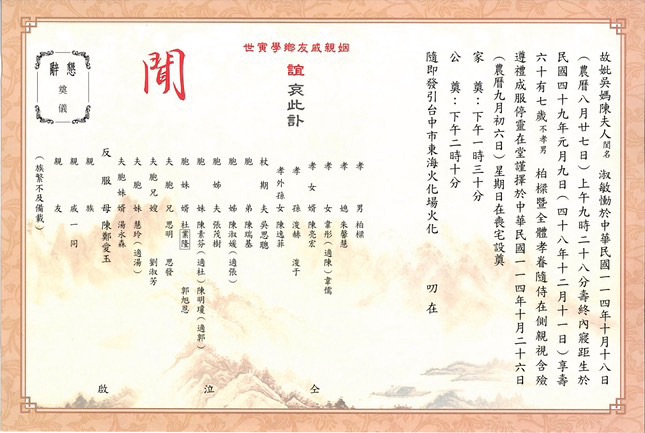 故妣吳媽陳夫人閨名 淑敏慟於中華民國一一四年十月十八日
（農曆八月廿七日）上午九時二十八分壽終內寢距生於
民國四十九年元月九日（四十八年十二月十一日）享壽
六十有七歲不孝男 柏樑暨全體孝眷隨侍在側親視含殮
遵禮成服停靈在堂謹擇於中華民國一一四年十月二十六日
（農曆九月初六日）星期日在喪宅設奠
家 奠：下午一時三十分
公 奠：下午二時十分
隨即發引台中市東海火化場火化 叨在
姻親戚友鄉學寅世
誼哀此訃
聞
懇辭
奠儀
孝男 柏樑
孝媳 朱馨慧
孝女 韋彤（適陳）韋儒
孝女婿 陳亮宏
孝孫 浚赫 浚于
孝外孫女 陳逸菲
杖期夫 吳思聰
胞弟 陳瑞基
胞姊 陳淑媛（適張）
胞姊夫 張茂樹
胞妹 陳素芬（適杜）陳明瓊（適郭）
胞妹婿 杜業隆 郭旭恩
夫胞兄 思明 思發
夫胞兄嫂 劉淑芳
夫胞妹 慧玲（適湯）
夫胞妹婿 湯永森
反服母 陳鄭愛玉
親族
親戚一同
親友
（族繁不及備載）
仝泣啟